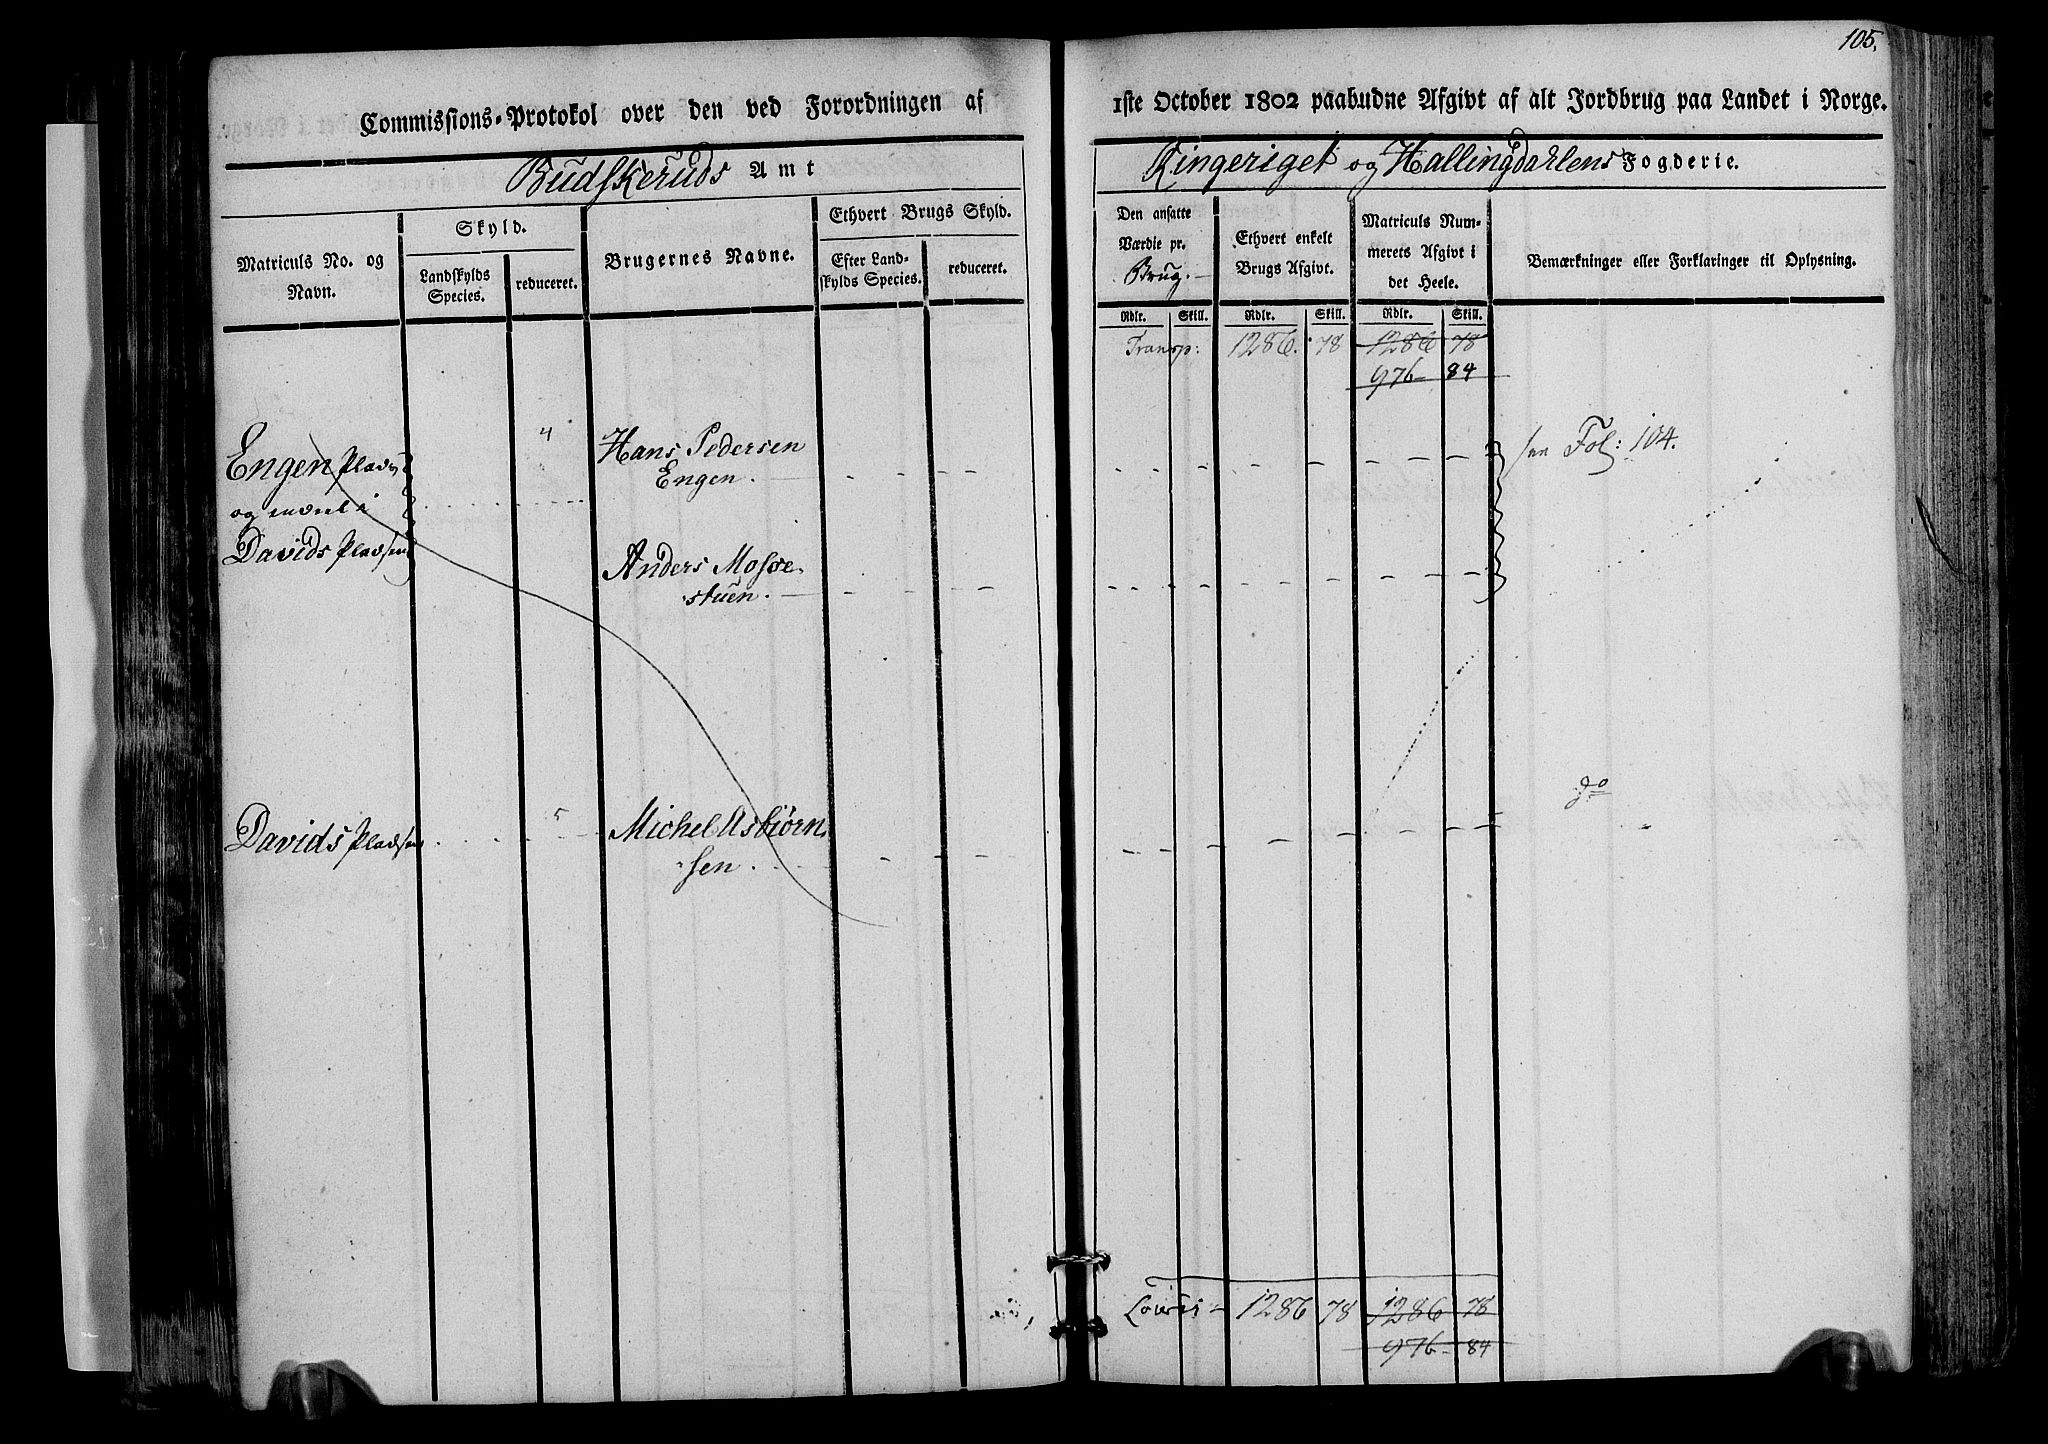 105.
Commissions-Protokol over den ved Forordningen af
1ste October 1802 paabudne Afgivt af alt Jordbrug paa Landet i Norge.
Budskeruds Amt
Ringeriget og Hallingdahlens Fogderie.
Matriculs No. og Navn.
Skyld.
Landskylds Species.
reduceret.
Brugernes Navne.
Ethvert Brugs Skyld.
Efter Landskylds Species.
reduceret.
Den ansatte Værdie pr. Brug.
Ethvert enkelt Brugs Afgivt.
Matriculs Nummerets Afgivt i det Heele.
Bemærkninger eller Forklaringer til Oplysning.
Rdlr. Skill. Rdlr. Skill. Rdlr. Skill.
Transp: 1286. 78 1286 78
976 84
Engen Plads
4
Hans Pedersen
Engen.
Fol: 104.
og
i
Davids Pladsen
Anders Mosse
stuen.
Davids Pladsen
5
Michel Asbiørn
sen.
do
1286 78 1286 78
976 84